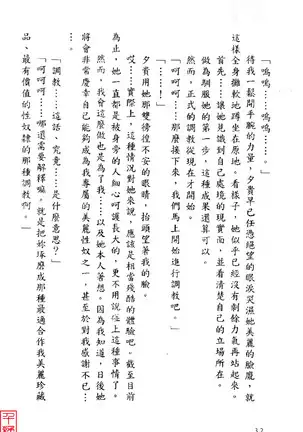 「嗚嗚……嗚嗚……。」
待我一鬆開手腕的力量，夕貴早已任憑絕望的眼淚哭濕她美麗的臉龐，就
這樣全身攤軟地蹲坐在原地。看樣子，她似乎已經沒有剩餘力氣再站起來。
首先……讓她見識到自己處境的現實面，並看清楚自己的立場所在。
做為馴服她的第一步，這種成果還算可以。
然而，正式的調教從現在才開始。
「呵呵呵……那麼接下來，我們馬上開始進行調教吧。」
「…………。」
夕貴用她那雙徬徨不安的眼睛，抬頭望著我的臉。
哎……實際上，這種情況對她來說，應該是相當殘酷的體驗吧。截至目前
為止，她一直都是被身旁的人細心呵護長大的，更不用說碰上這種事情了。
然而，我會這麼做也是為了我……以及她本人著想。因為我知道，日後她
將會非常慶幸自己能夠成為我專屬的美麗性奴之一，甚至於對我感謝不已…
「調教……這話，究竟……是什麼意思？」
「呵呵呵……哪還需要解釋嘛。就是把妳琢磨成那種最適合作我美麗珍藏
品、最有價值的性奴隸的那種調教呵。」
32